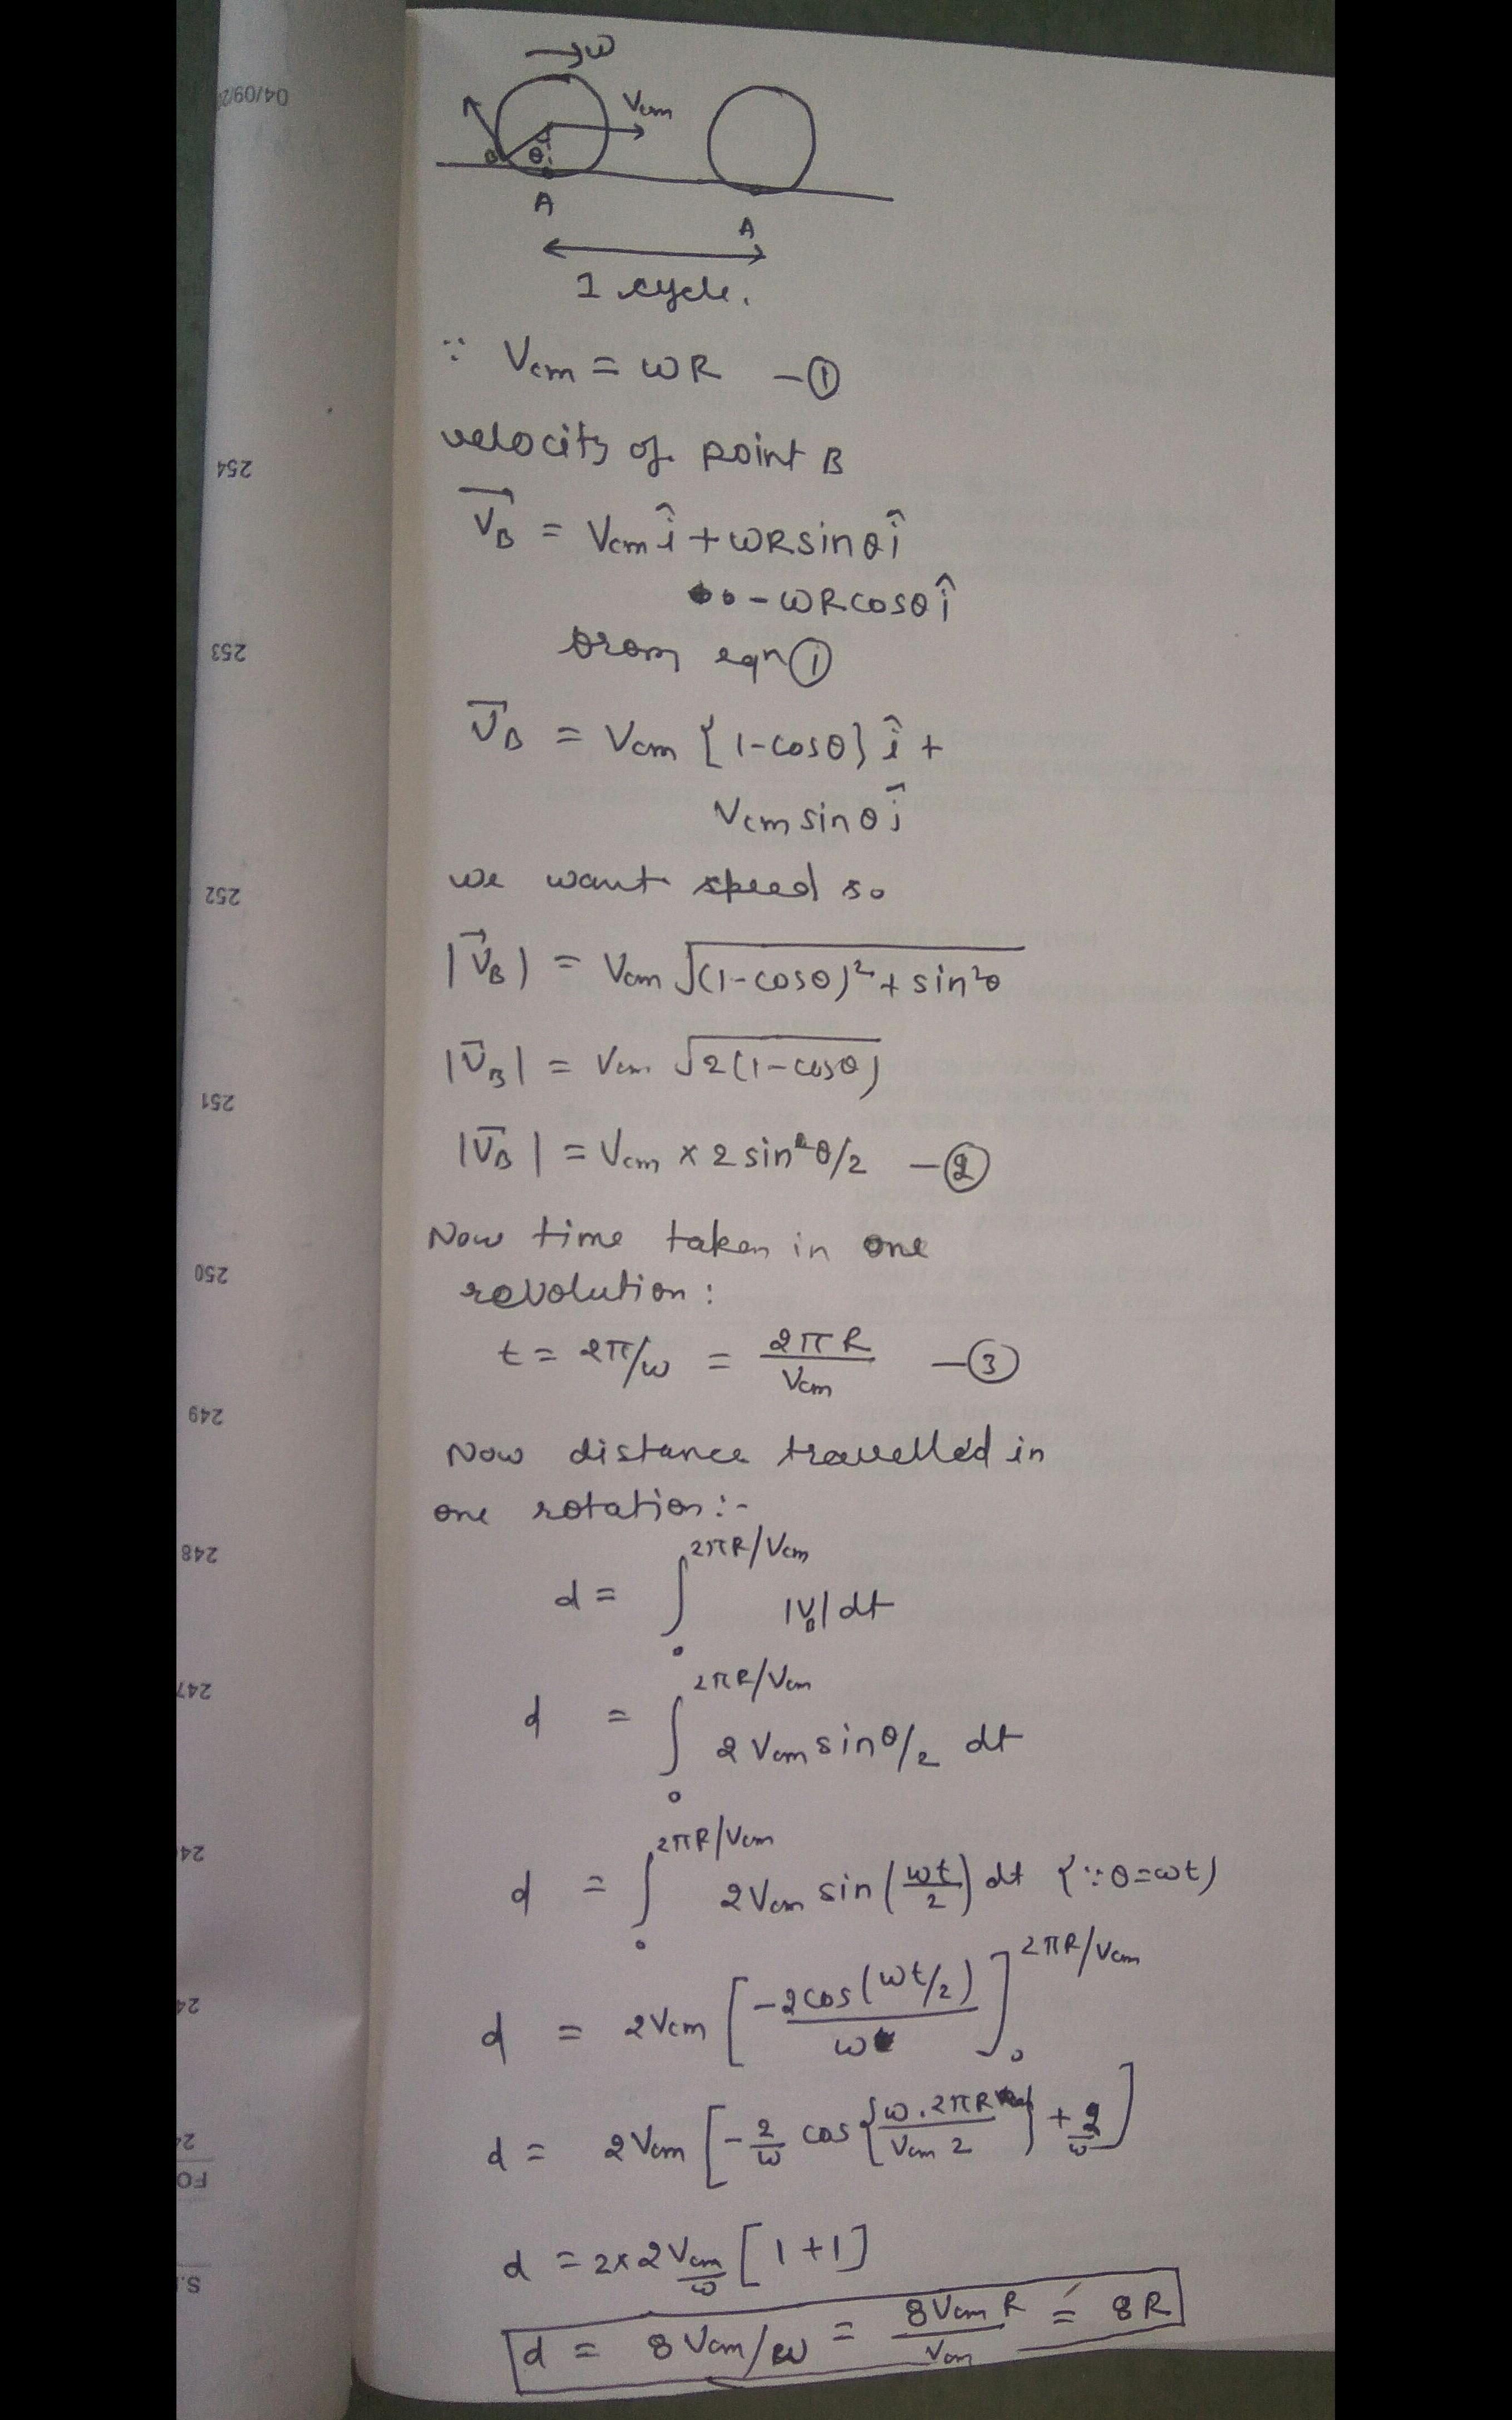 →ω
Vcm
B θ
A
A
1 cycle.
∵ Vcm = ωR —①
velocity of point B
V⃗B = Vcm î + ωRsinθ î
- ωRcosθ î
from eqn ①
V⃗B = Vcm {1-cosθ} î +
Vcm sinθ ĵ
we want speed so
|V⃗B| = Vcm √((1-cosθ)²+ sin²θ)
|V⃗B| = Vcm √(2(1-cosθ))
|V⃗B| = Vcm × 2 sin θ/2 —②
Now time taken in one
revolution :
t = 2π/ω = 2πR/Vcm —③
Now distance travelled in
one rotation :-
d = ∫₀^(2πR/Vcm) |VB| dt
d = ∫₀^(2πR/Vcm) 2Vcm sin θ/2 dt
d = ∫₀^(2πR/Vcm) 2Vcm sin (ωt/2) dt {∵ θ=ωt)
d = 2Vcm [-2cos(ωt/2)/ω]₀^(2πR/Vcm)
d = 2Vcm [-2/ω cos {ω.2πR/Vcm 2} + 2/ω]
d = 2×2Vcm/ω [1+1]
d = 8Vcm/ω = 8Vcm R/Vcm = 8R
04/09/2
254
253
252
251
250
249
248
247
24
24
24
FO
S.